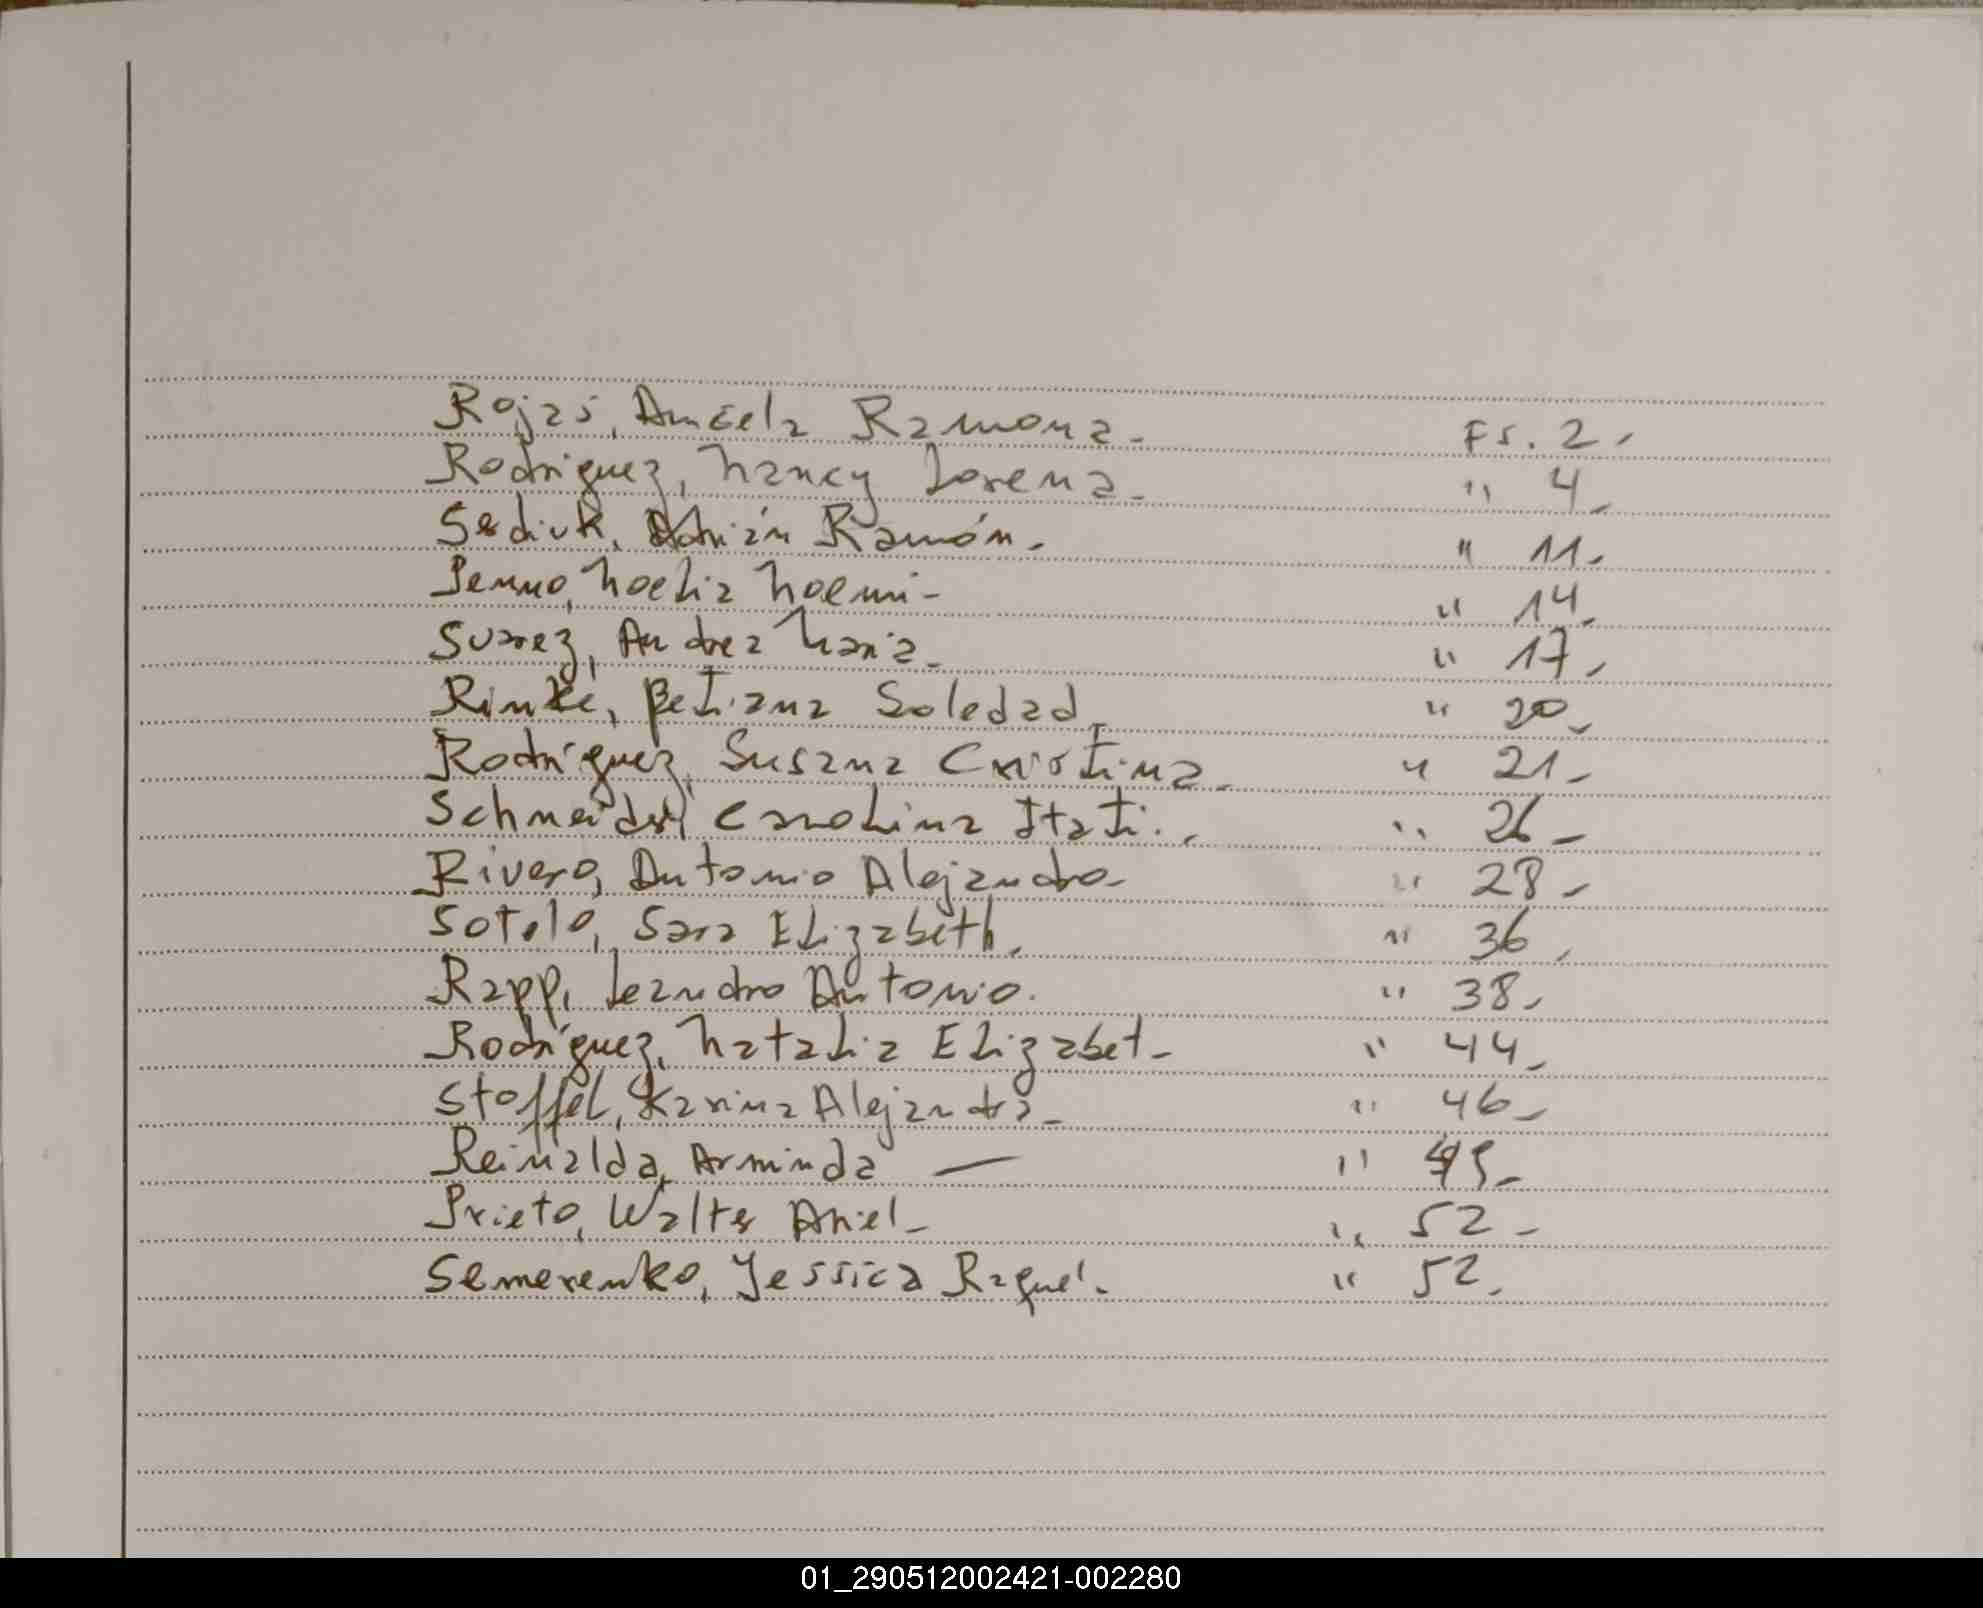 Rojas, Angela Ramona. Fs. 2.
Rodriguez, Nancy Lorena. " 4.
Sediuk, Adrián Ramón. " 11.
Penno, Noelia Noemi- " 14.
Suarez, Andrea Maria. " 17.
Rinke, Betiana Soledad. " 20.
Rodríguez, Susana Cristina. " 21-
Schneider, Carolina Itati. " 26-
Rivero, Antonio Alejandro- " 28-
Sotelo, Sara Elizabeth. " 36.
Rapp, Leandro Antonio. " 38-
Rodríguez, Natalia Elizabet- " 44-
Stoffel, Karina Alejandra- " 46-
Reinalda, Arminda — "
Prieto, Walter Ariel- " 52-
Semerenko, Yessica Raquel. " 52.
01_290512002421-002280